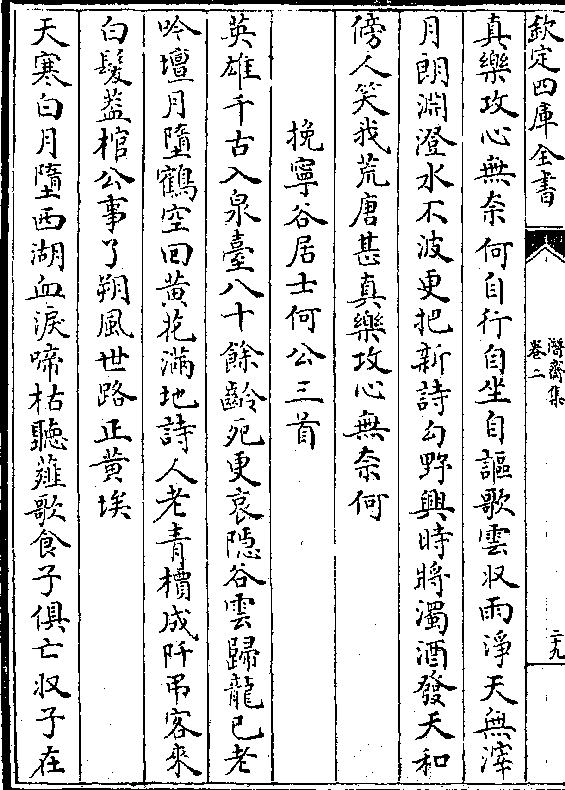 欽定四庫全書
潛齋集
卷二
二十九
真樂攻心無奈何自行自坐自謳歌雲収雨淨天無滓
月朗淵澄水不波更把新詩勾野興時將濁酒發天和
傍人笑我荒唐甚真樂攻心無奈何
挽寧谷居士何公三首
英雄千古入泉臺八十餘齡死更哀隠谷雲歸龍已老
吟壇月墮鶴空回黃花滿地詩人老青檟成阡弔客來
白髮葢棺公事了朔風世路正黃埃
天寒白月墮西湖血淚啼枯聽薤歌食子俱亡収子在